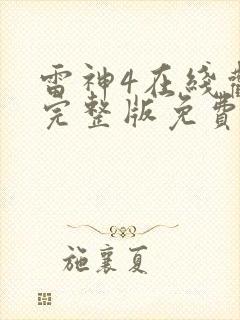 雷神4在线
完整版免费
施襄夏